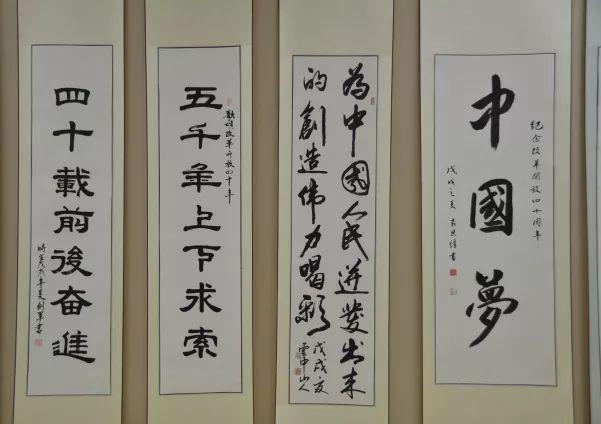 紀念改革開放四十周年
中國夢
戊戌之夏
為中國人民迸發出来
的創造偉力喝彩
戊戌夏
雲中山人
歌頌改革开放四十年
五千年上下求索
四十載前後奮進
時在戊戌年夏剑军書